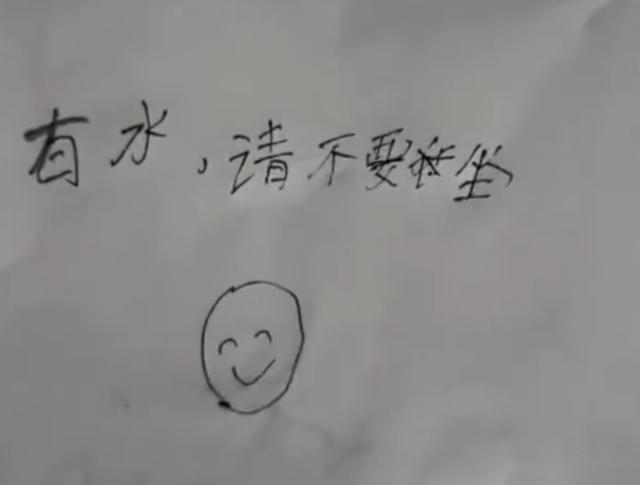 有水,请不要坐